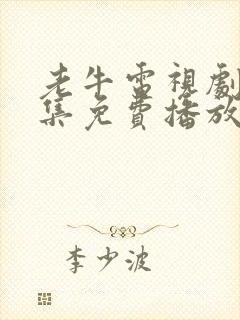 老牛電視劇
集免費播放
李少波